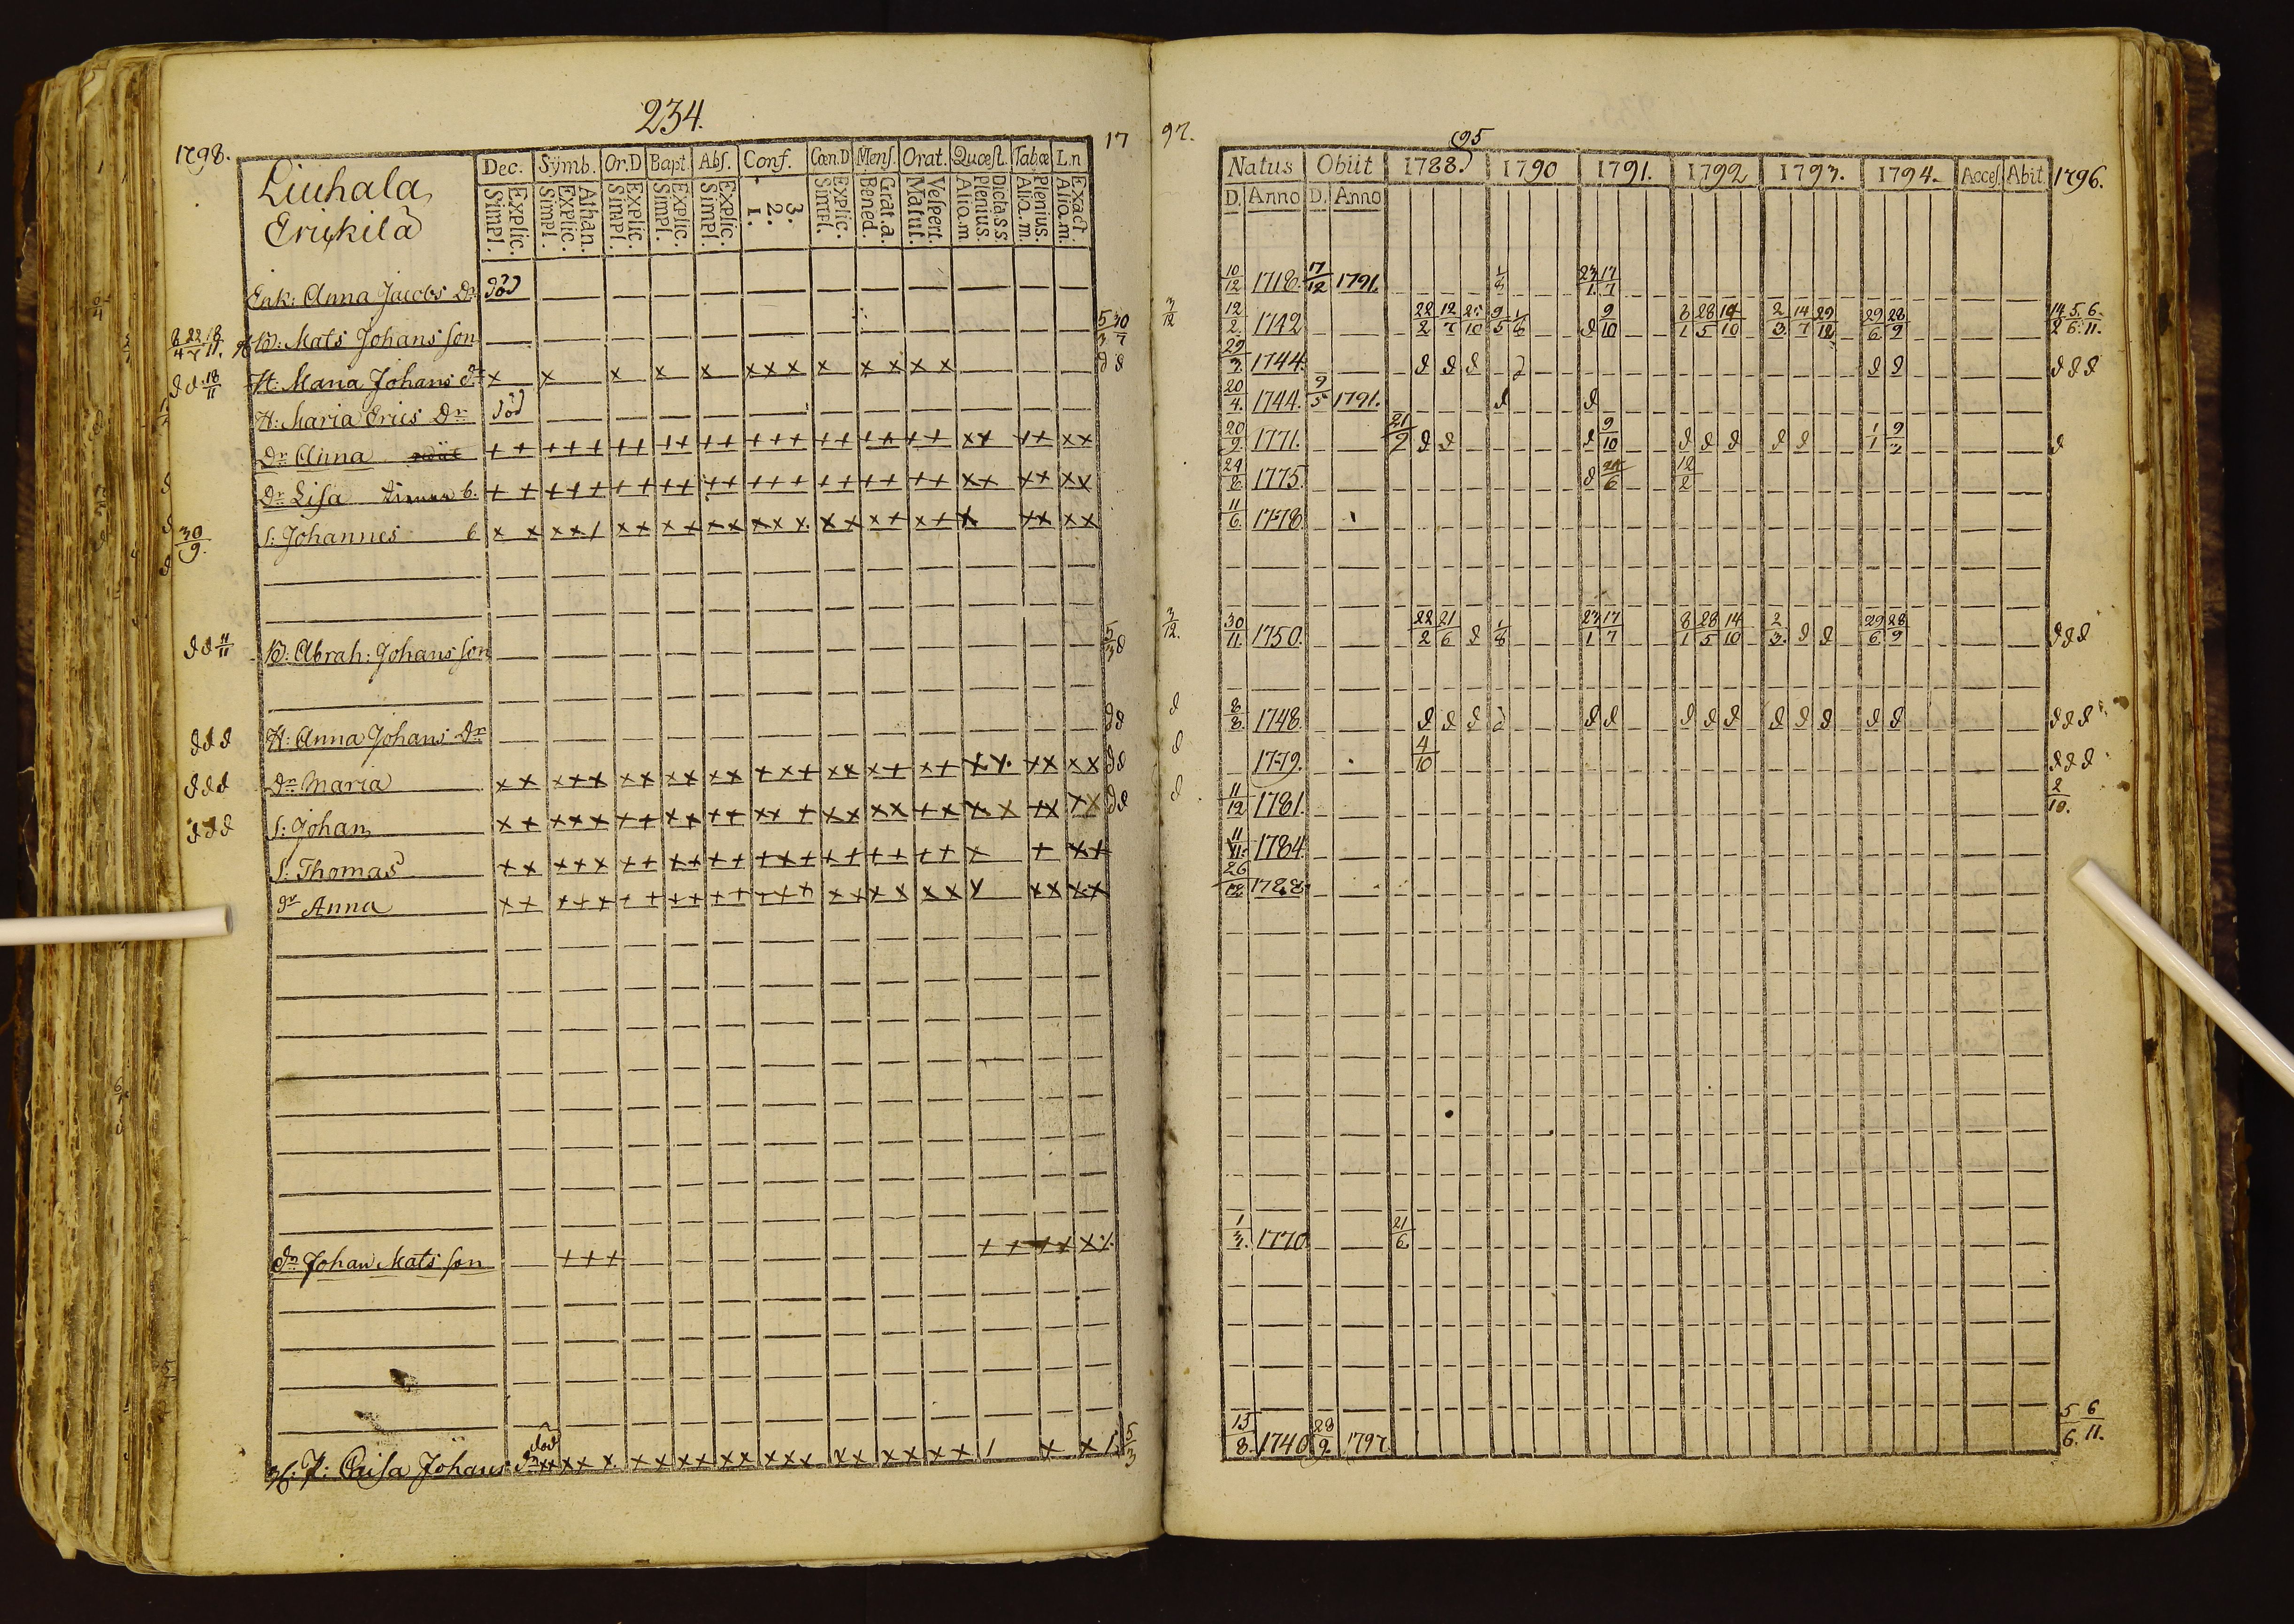 234.
1798.
17
97.
95
Liuhala
Erickilä
Dec. Symb. Or.D Bapt. Abs. Conf. Cœn.D Mens. Orat. Quæst. Tabæ L.n
Explic. Simpl. Athan. Explic. Simpl. Explic. Simpl. Explic. Simpl. Explic. Simpl. 3. 2. 1. Explic. Simpl. Grat.a. Bened. Vespert. Matut. Dicta s s Plenius. Aliq.m Plenius. Aliq.m. Exact. Aliq.m.
Natus Obiit 1788. 1790 1791. 1792 1793. 1794. Acces. Abit. 1796.
D. Anno D. Anno
Enk: Anna Jacobs Dr död 10/12 1718. 17/12 1791. 1/8 23/1. 17/7
B: Mats Johans son 5/3 30/7 3/12 12/2. 1742 22/2 12/7 9/5 1/8 9/10 8/1 28/5 14/10 2/3. 14/7 29/6 28/9 14/2 5/6 6/11.
d d 18/11 H: Maria Johans dr x x x x x x x x x x x x x x d d 29/3. 1744. d d d d d d d d d
H: Maria Erics Dr död 20/4. 1744. 9/5 1791. d d
Dr Anna + + + + + + + + + + + + + + + + + + + + x x + + x x 20/9. 1771. 21/9 d d d 9/10 d d d d d 1/1 d
Dr Lisa 6. + + + + + + + + + + + + + + + + + + + + x x x x x x 24/8. 1775. d 12/2
S: Johannes 6 11/6. 1778.
30/9.
d d 11/11 B: Abrah: Johans son 5/3 d 3/12. 30/11. 1750. 22/2 21/6 d 1/8 23/1 17/7 8/1 28/5 14/10 2/3. d d 29/6 28/9 d d d
d d d H: Anna Johans Dr d d d 8/8. 1748. d d d d d d d d d d d d d d d d d
d d d Dr Maria x x x x x x x x x x x x + x + x x x + x + x x x x x x d d d 1779. 4/10 d d d
d d d S: Johan d d d 11/12 1781. 2/10.
S: Thomas 11/11. 1784.
dr Anna 26/12. 1788.
Dr Johan Mats son + + + + + + + x 1/3. 1770 21/6.
H: Caisa Johans dr död 5/3 15/8. 1740 28/9. 1797. 5/6. 6/11.